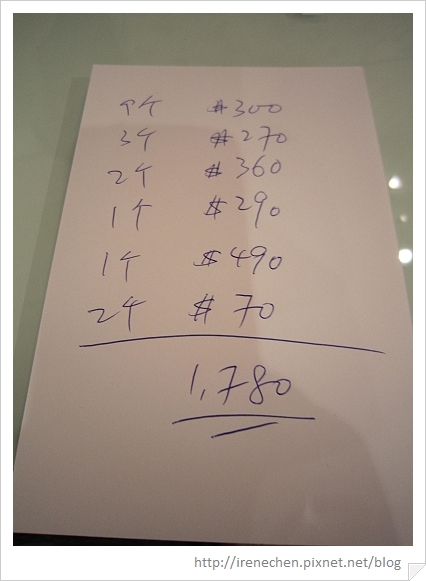 个 $300
3个 $270
2个 $360
1个 $290
1个 $490
2个 $70
1,780
http://irenechen.pixnet.net/blog